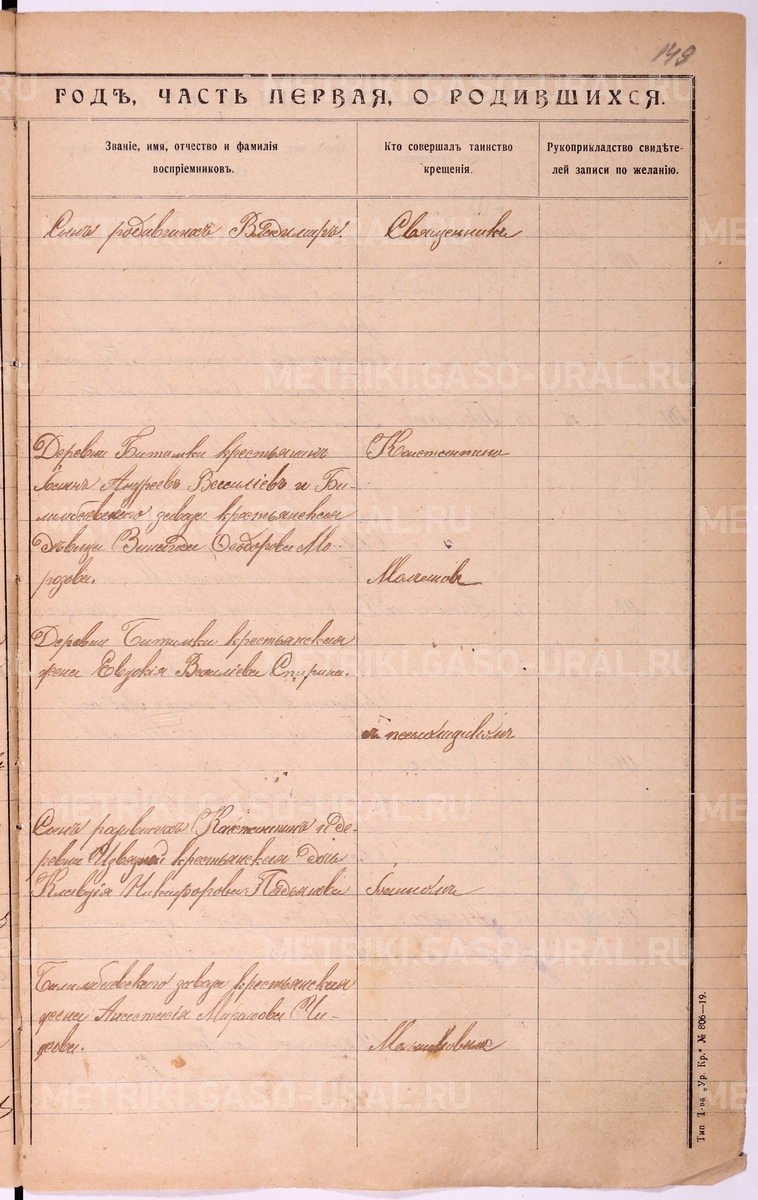 149
ГОДЪ, ЧАСТЬ ПЕРВАЯ, О РОДИВШИХСЯ.
Званіе, имя, отчество и фамилія
воспріемниковъ.
Кто совершалъ таинство
крещенія.
Рукоприкладство свидѣте-
лей записи по желанію.
Сынъ родившихъ Владимиръ.
Священникъ
Деревни Битимки крестьянинъ
Андреевъ Василіевъ и Би-
лимбаевского завода крестьянская
дѣвица Зинаида Ѳеодорова Мо-
розова.
Константинъ
Малиновъ
Деревни Битимки крестьянская
жена Евдокія Василіева Спирина.
съ псаломщикомъ
Сынъ Константинъ и де-
ревни крестьянская дочь
Клавдія Никифорова
Билимбаевского завода крестьянская
жена Анастасія Чи-
жова.
METRIKI.GASO-URAL.RU
Тип. Т-ва „Ур. Кр.“ № 806—19.